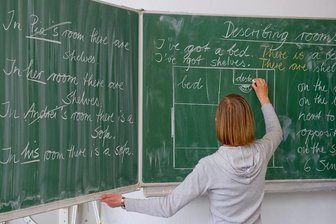 In Pia's room there are
shelves.
In her room there are
shelves.
In Andrei's room there is a
sofa.
In his room there is a sofa.
Describing rooms
I've got a bed. There is a bed
I've got shelves. There are shelves
bed
desk
on the
on the
next to
opposi